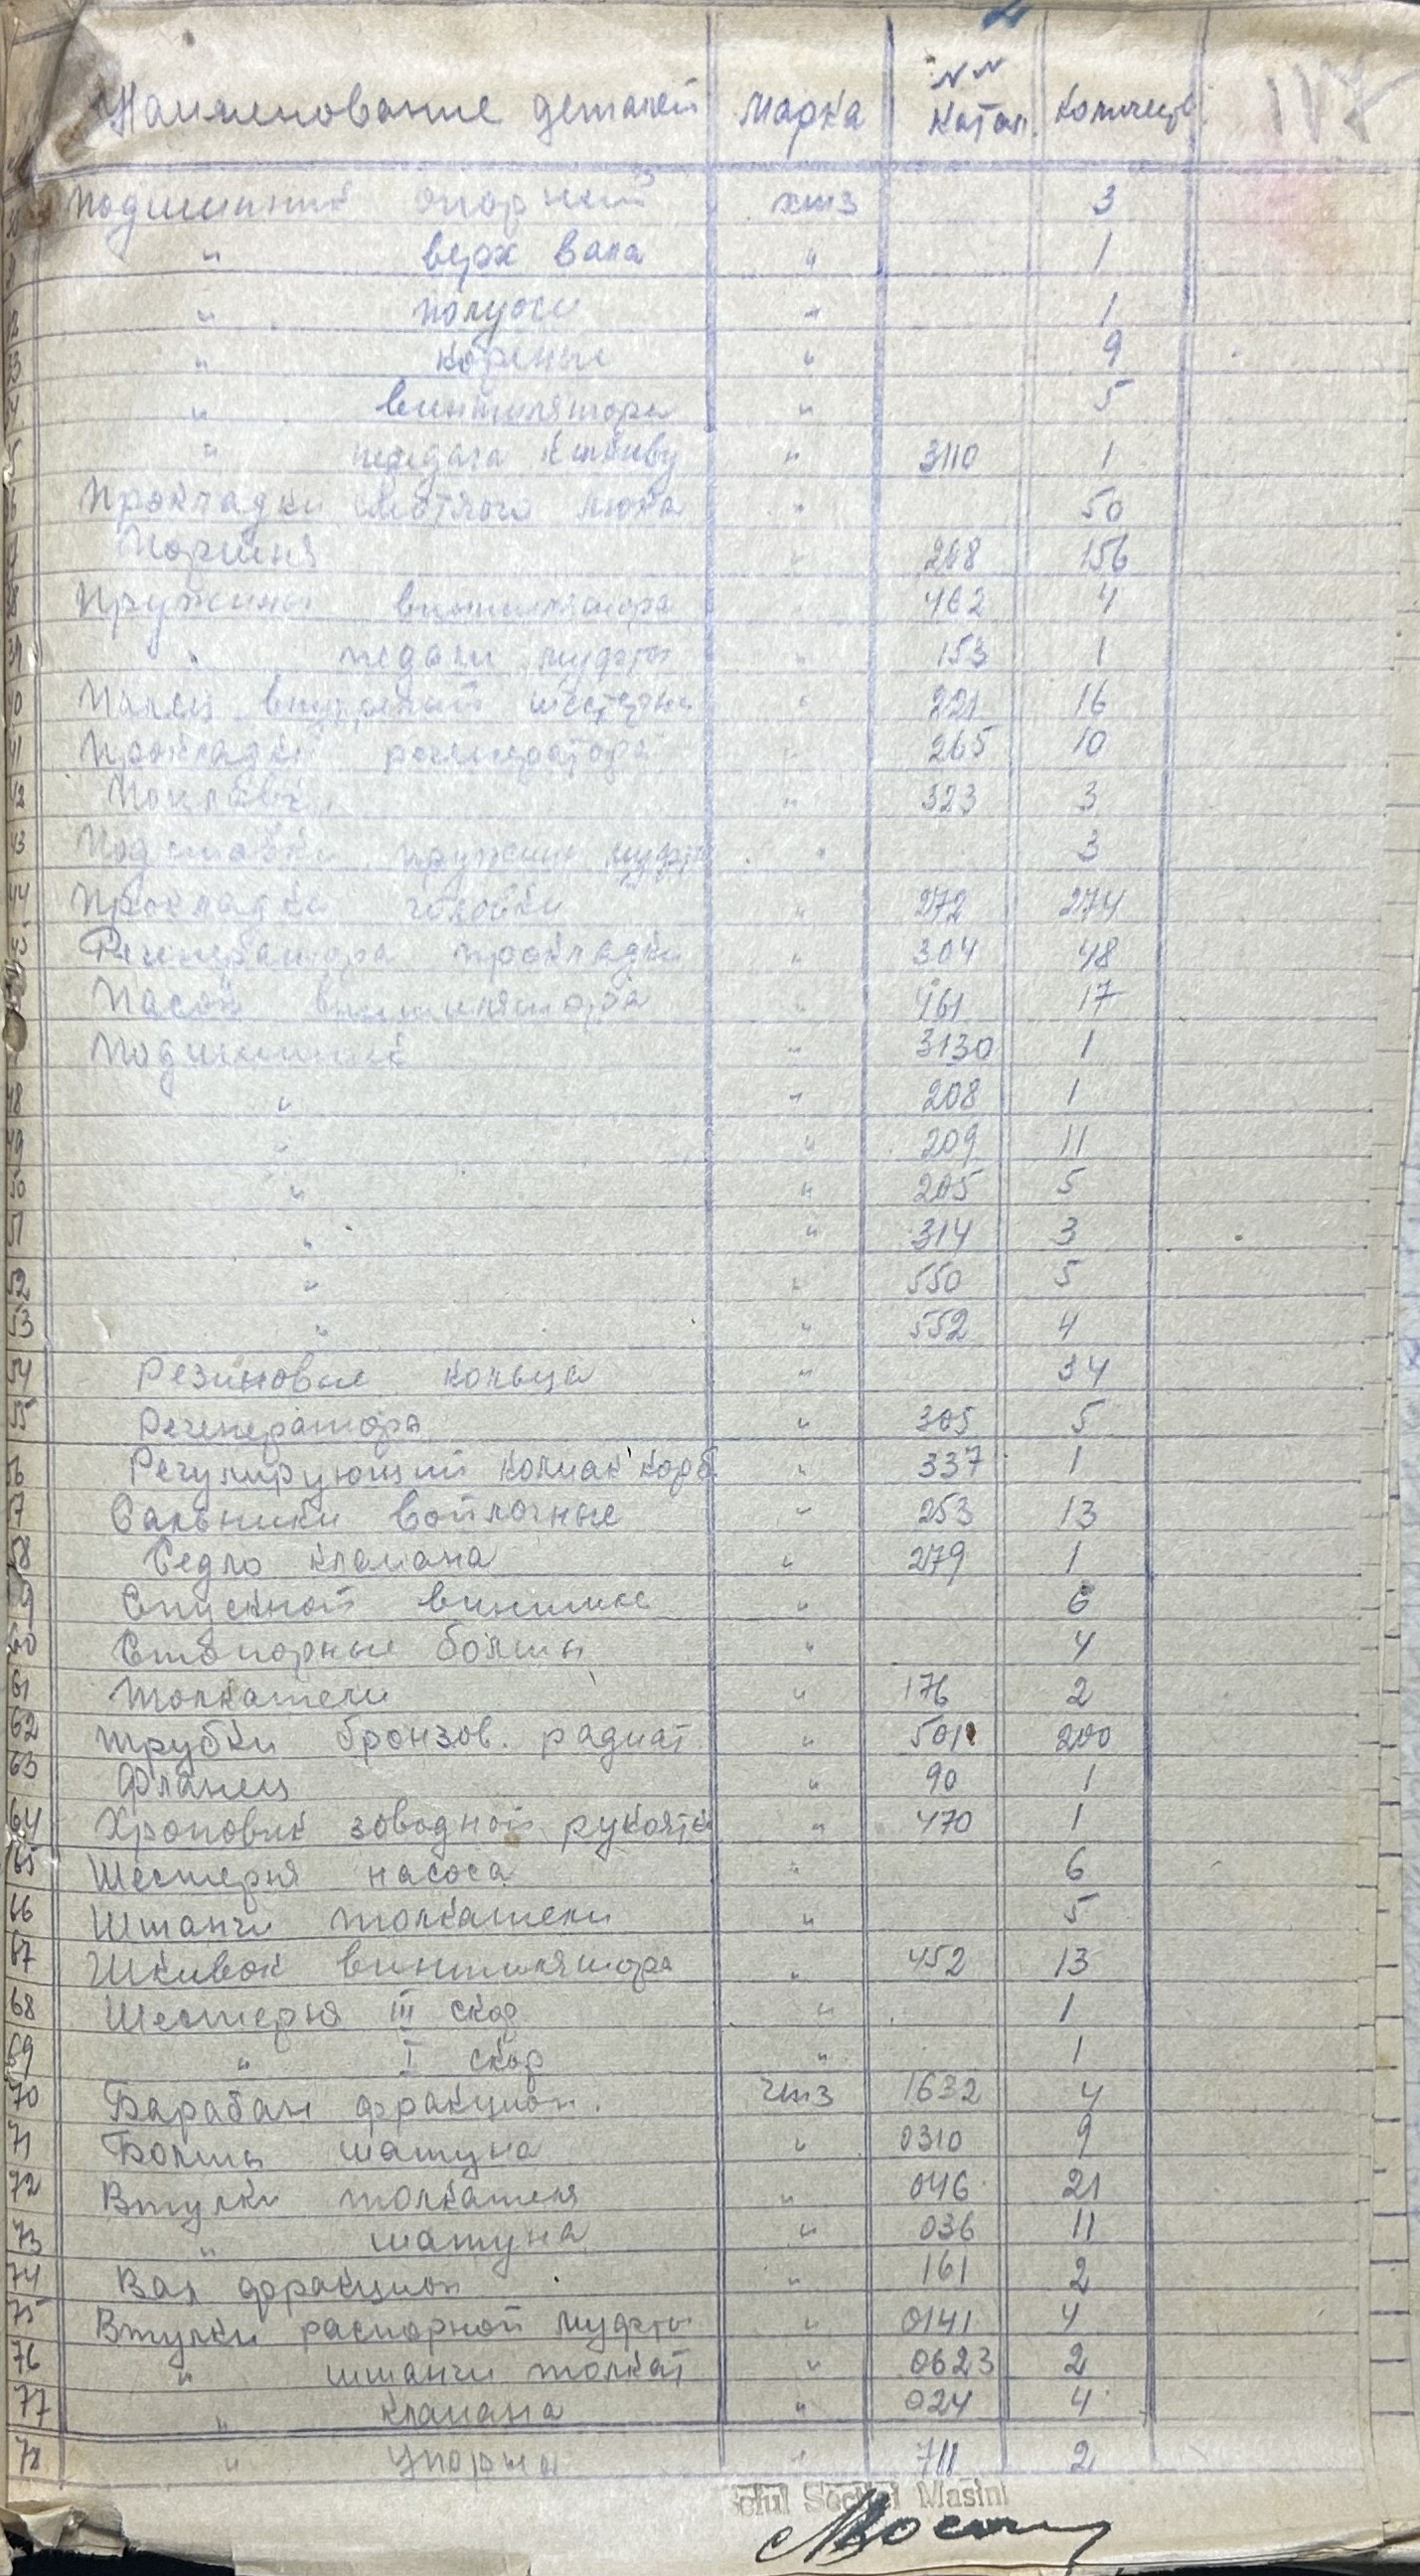 Наименование деталей Марка №№ Катал. Количеств. 117
Подшипник опорный хтз 3
" верх вала " 1
" полуоси " 1
" кореные " 9
" винтилятора " 5
" передача к шкиву " 3110 1
Прокладки люка " 50
Поршня " 208 156
Пружины винтилятора " 462 4
" педали муфты " 153 1
Палец внутреней шестерни " 221 16
Прокладки регенератора " 265 10
" 323 3
Подставки пружин муфты " 3
Прокладки головки " 272 274
Регенератора прокладки " 304 48
Пасок винтилятора " 461 17
Подшипник " 3130 1
48 " " 208 1
49 " " 209 11
50 " " 205 5
51 " " 314 3
52 " " 550 5
53 " " 552 4
54 Резиновые кольца " 34
55 Регенератора " 305 5
56 Регулирующий колпак карб. " 337 1
57 Сальники войлочные " 253 13
58 Седло клапана " 279 1
59 Спускной винтик " 6
60 Стопорные болты " 4
61 Толкатели " 176 2
62 Трубки бронзов. радиат. " 501 200
63 Фланец " 90 1
64 Храповик заводной рукоятки " 470 1
65 Шестерня насоса " 6
66 Штанги толкатели " 5
67 Шкивок винтилятора " 452 13
68 Шестерня III скор " 1
69 " I скор " 1
70 Барабан фракцион. чтз 1632 4
71 Болты шатуна " 0310 9
72 Втулки толкателя " 046 21
73 " шатуна " 036 11
74 Вал фракцион " 161 2
75 Втулки распорной муфты " 0141 4
76 " штанги толкат " 0623 2
77 " клапана " 024 4
78 " упорна " 711 2
Masini